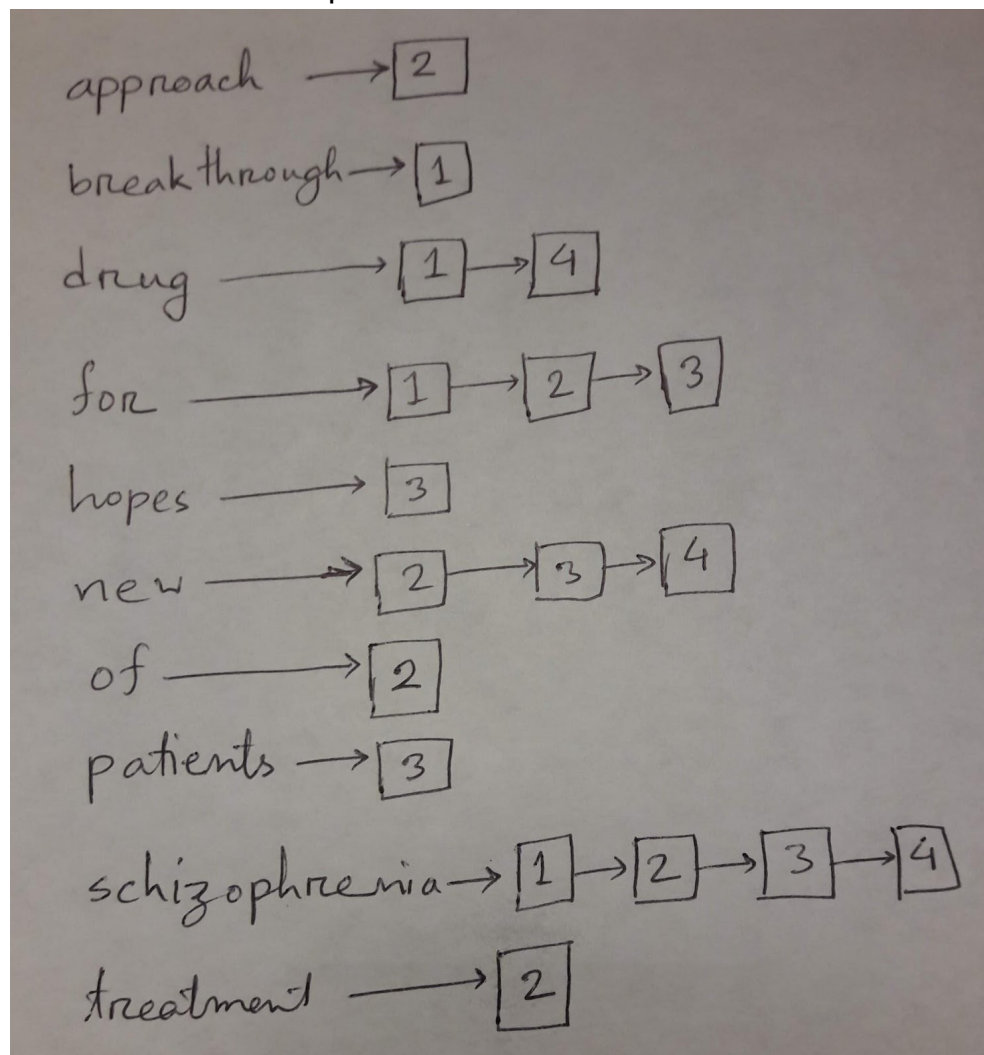 approach → 2
breakthrough → 1
drug → 1 → 4
for → 1 → 2 → 3
hopes → 3
new → 2 → 3 → 4
of → 2
patients → 3
schizophrenia → 1 → 2 → 3 → 4
treatment → 2